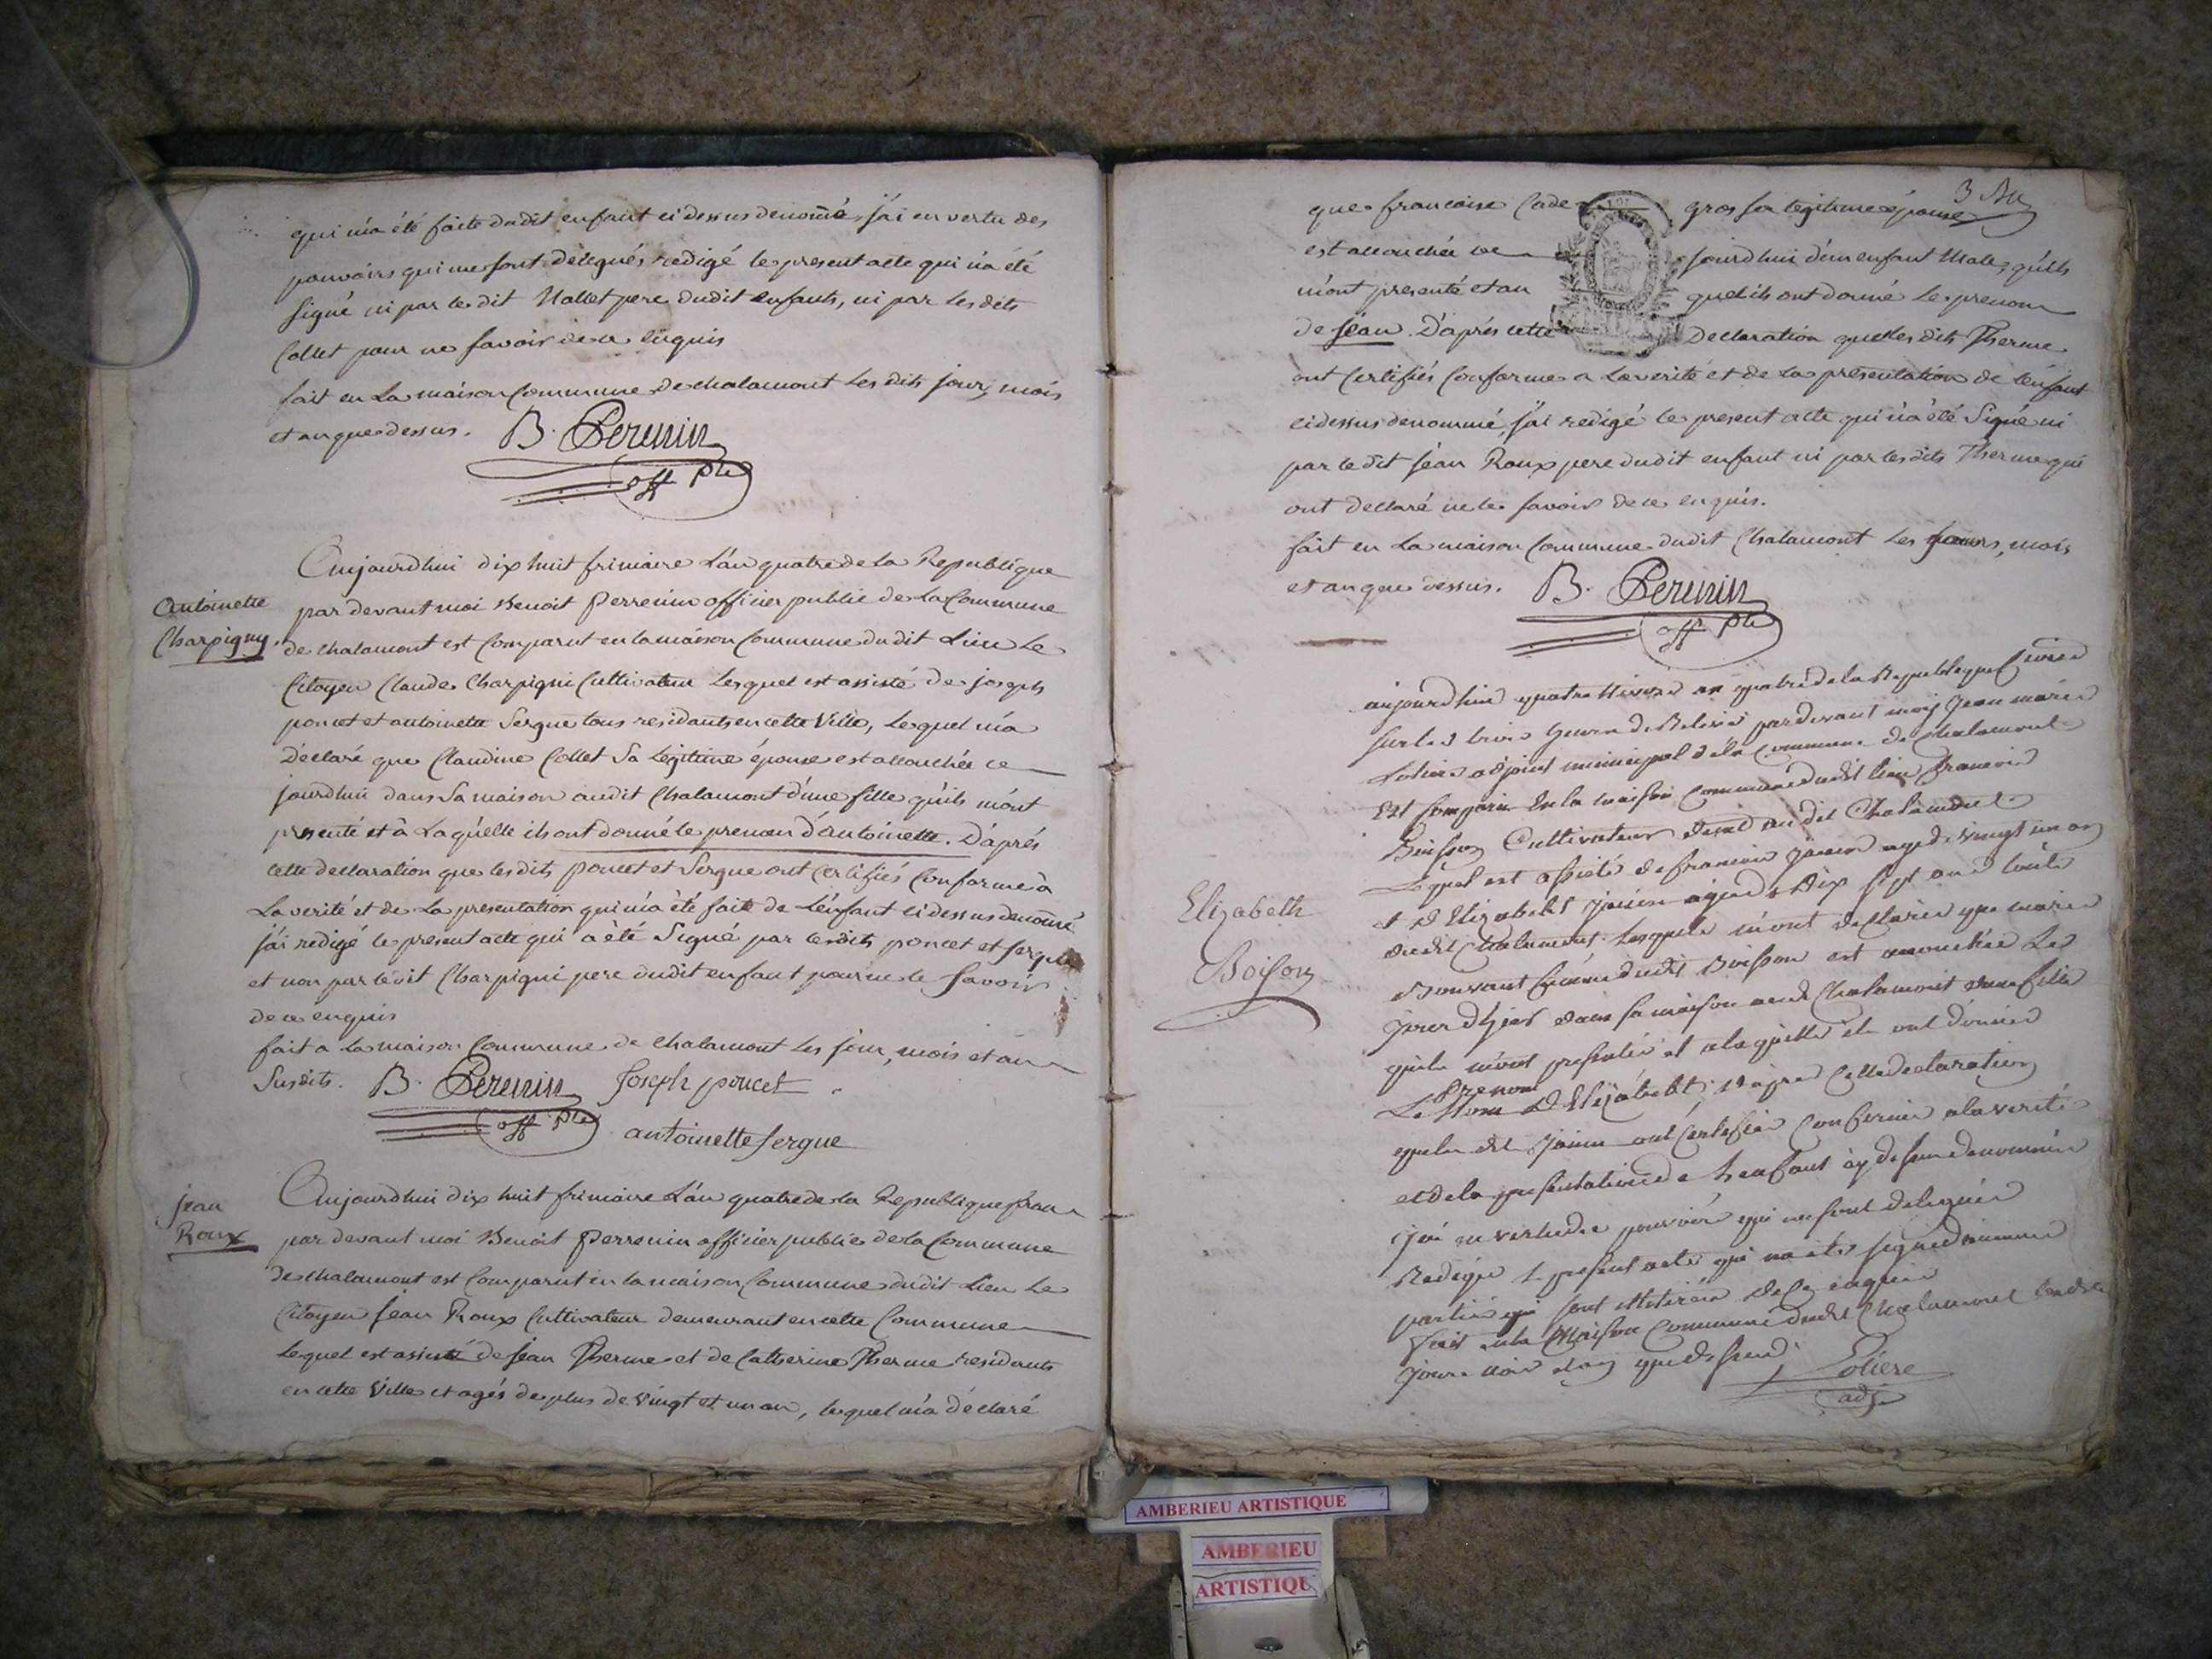 qui m'a été faite dudit enfant ci dessus denomé, j'ai en vertu des
pouvoirs qui me sont délegués redigé le present acte qui n'a été
signé ni par le dit Nallet pere dudit enfants, ni par les dits
Collet pour ne savoir de ce enquis
fait en la maison Commune de chalamont les dits jour, mois
et an que dessus. B. Perenin
off. ple
Antoinette
Charpigny.
Aujourdhui dix huit frimaire L'an quatre de la Republique
par devant moi Benoit Perrenin officier public de la Commune
de chalamont est Comparut en la maison Commune du dit Lieu Le
Citoyen Claude Charpigni Cultivateur Lequel est assisté de joseph
poncet et antoinette Sergue tous residants en cette Ville, Lequel m'a
Déclaré que Claudine Collet Sa Légitime épouse est accouchée ce
jourdhui dans Sa maison audit Chalamont d'une fille qu'ils m'ont
presenté et à Laquélle ils ont donné le prenom d'Antoinette. D'aprés
cette declaration que les dits poncet et Sergue ont certifiés Conforme à
La verité et de La presentation qui m'a été faite de L'enfant ci dessus denomé
j'ai redigé le present acte qui a été Signé par les dits poncet et sergue
et non par le dit Charpigni pere dudit enfant pour ne le Savoir
de ce enquis
fait a La maison Commune de Chalamont Les jour, mois et an
Susdits. B. Perenin Joseph poncet
off. ple antoinette sergue
jean
Roux
Aujourdhui dix huit frimaire L'an quatre de la Republique fran
par devant moi Benoit Perrenin officier public de la Commune
de Chalamont est Comparut en la maison Commune dudit Lieu Le
Citoyen Jean Roux Cultivateur demeurant en cette Commune
Lequel est assisté de Jean Therme et de Catherine Therme residants
en cette Ville et agés de plus de Vingt et un an, lequel m'a déclaré
3
que francoise Cade gros sa légitime épouse
est accouchée ce jourdhui d'un enfant Male, qu'ils
m'ont presenté et au quel ils ont donné Le prenom
de Jéan. D'aprés cette Declaration que les dits Therme
ont Certifiés Conforme a La verité et de La présentation de L'enfant
cidessus denommé, j'ai redigé le present acte qui n'a été Signé ni
par le dit Jéan Roux pere dudit enfant ni par les dits Therme qui
ont declaré ne le savoir de ce enquis.
fait en La maison Commune dudit Chalamont Les jours, mois
et an que dessus. B. Perenin
off. ple
Elizabeth
Boison
aujourdhui quatre Nivose an quatre de la Republique
sur les trois heures de Relevé pardevant moy Jean marie
Loliere adjoint municipal de la Commune de Chalamont
Est Comparu En la maison Commune dudit lieu francois
Boisson Cultivateur dud audit Chalamont
Lequel est assisté de francois Janin agé de vingt un an
et d'Elizabeth Janin agée de Dix sept ans tous
dudit Chalamont. Lesquels m'ont declaré que marie
femme dudit Boisson est accouchée Le
jour d'hier dans sa maison aud Chalamont d'une fille
quils m'ont presentée et a laquelle ils ont donné
Le prenom d'Elizabeth; d'apres Cette declaration
que les dits Janin ont Certifié Conforme a la verité
et de la presentation de L'enfant cy dessus denommée
J'ai en vertu des pouvoirs qui me sont delegués
Redigé Le present acte qui n'a été signé d'aucune
partie qui sont de ce enquis
Fait en la Maison Commune dudit Chalamont lesdits
jour mois et an que dessus. Loliere
adj.
AMBERIEU ARTISTIQUE
AMBERIEU
ARTISTIQU